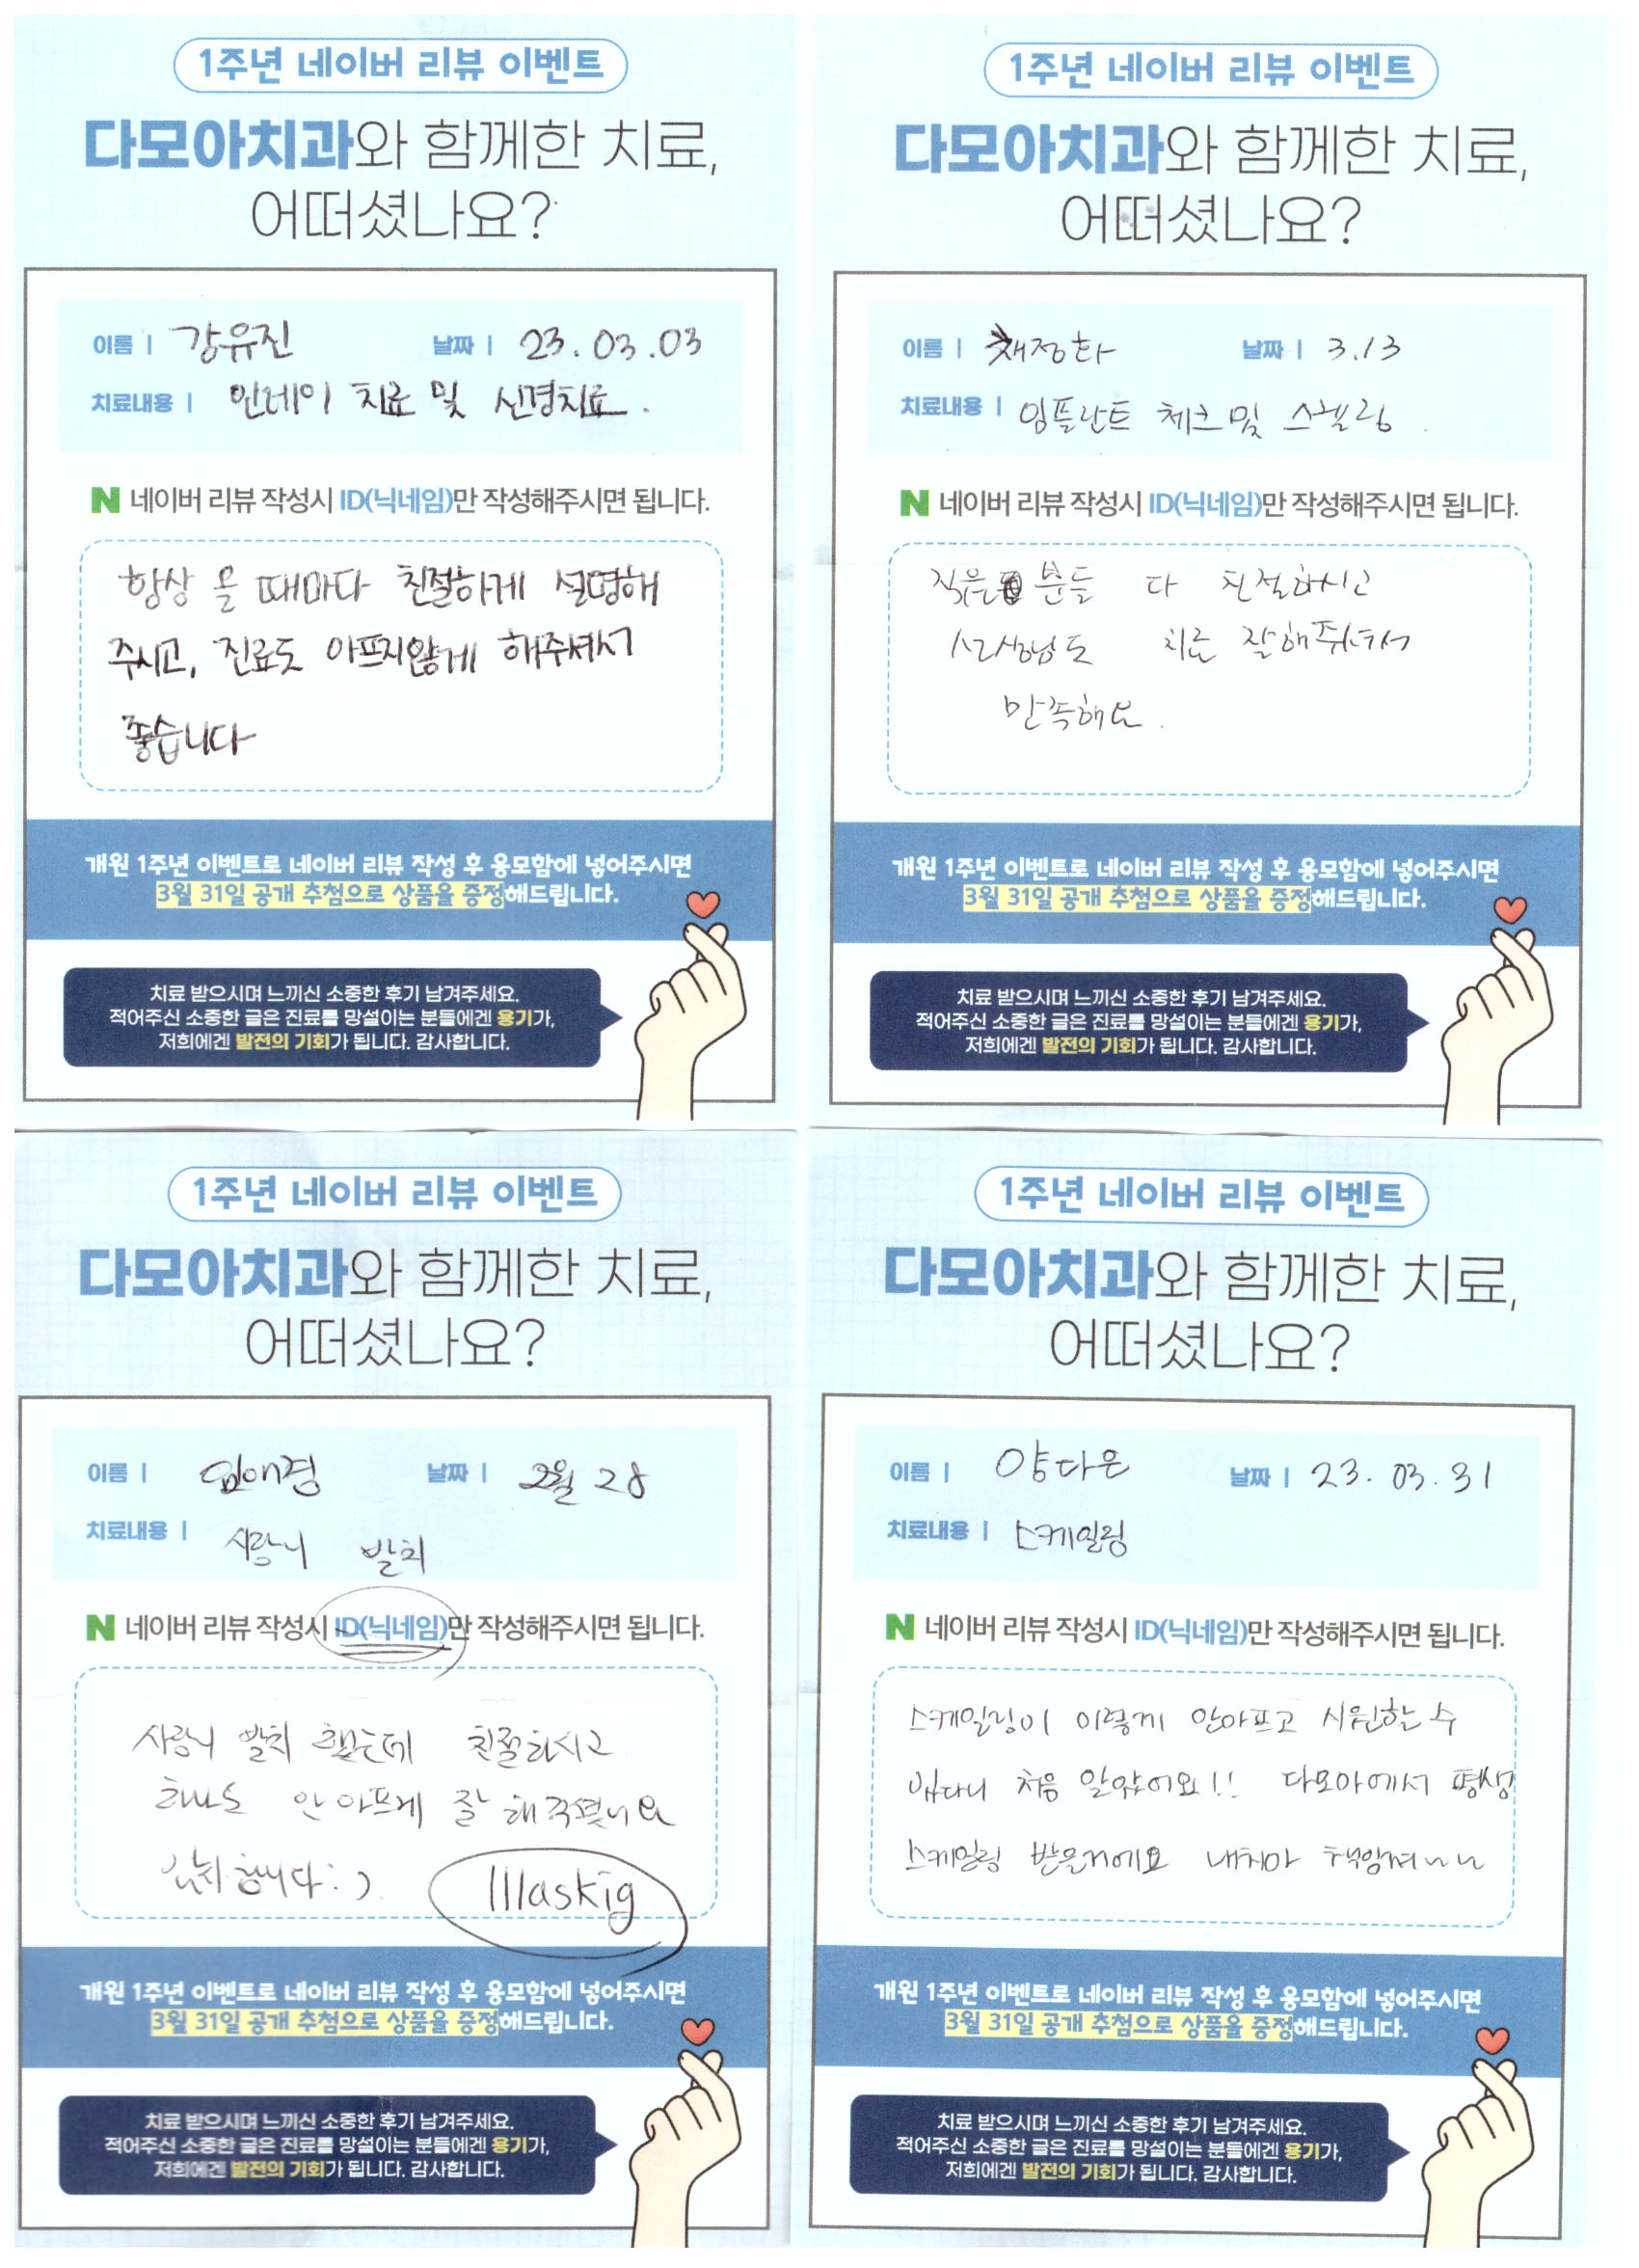 1주년 네이버 리뷰 이벤트
다모아치과와 함께한 치료,
어떠셨나요?
이름 | 강유진 날짜 | 23.03.03
치료내용 | 인레이 치료 및 신경치료.
N 네이버 리뷰 작성시 ID(닉네임)만 작성해주시면 됩니다.
항상 올 때마다 친절하게 설명해
주시고, 진료도 아프지않게 해주셔서
좋습니다
개원 1주년 이벤트로 네이버 리뷰 작성 후 응모함에 넣어주시면
3월 31일 공개 추첨으로 상품을 증정해드립니다.
치료 받으시며 느끼신 소중한 후기 남겨주세요.
적어주신 소중한 글은 진료를 망설이는 분들에겐 용기가,
저희에겐 발전의 기회가 됩니다. 감사합니다.
1주년 네이버 리뷰 이벤트
다모아치과와 함께한 치료,
어떠셨나요?
이름 | 채정화 날짜 | 3.13
치료내용 | 임플란트 체크 및 스켈링.
N 네이버 리뷰 작성시 ID(닉네임)만 작성해주시면 됩니다.
직원 분들 다 친절하시고
선생님도 치료 잘해주셔서
만족해요.
개원 1주년 이벤트로 네이버 리뷰 작성 후 응모함에 넣어주시면
3월 31일 공개 추첨으로 상품을 증정해드립니다.
치료 받으시며 느끼신 소중한 후기 남겨주세요.
적어주신 소중한 글은 진료를 망설이는 분들에겐 용기가,
저희에겐 발전의 기회가 됩니다. 감사합니다.
1주년 네이버 리뷰 이벤트
다모아치과와 함께한 치료,
어떠셨나요?
이름 | 임애경 날짜 | 2월 28
치료내용 | 사랑니 발치
N 네이버 리뷰 작성시 ID(닉네임)만 작성해주시면 됩니다.
사랑니 발치 했는데 친절하시고
안아프게 잘 해주셨어요
감사합니다:)
lllaskig
개원 1주년 이벤트로 네이버 리뷰 작성 후 응모함에 넣어주시면
3월 31일 공개 추첨으로 상품을 증정해드립니다.
치료 받으시며 느끼신 소중한 후기 남겨주세요.
적어주신 소중한 글은 진료를 망설이는 분들에겐 용기가,
저희에겐 발전의 기회가 됩니다. 감사합니다.
1주년 네이버 리뷰 이벤트
다모아치과와 함께한 치료,
어떠셨나요?
이름 | 양다은 날짜 | 23. 03. 31
치료내용 | 스케일링
N 네이버 리뷰 작성시 ID(닉네임)만 작성해주시면 됩니다.
스케일링이 이렇게 안아프고 시원할 수
있다니 처음 알았어요!! 다모아에서 평생
스케일링 받을거에요 내치아 책임져ㄴㄴ
개원 1주년 이벤트로 네이버 리뷰 작성 후 응모함에 넣어주시면
3월 31일 공개 추첨으로 상품을 증정해드립니다.
치료 받으시며 느끼신 소중한 후기 남겨주세요.
적어주신 소중한 글은 진료를 망설이는 분들에겐 용기가,
저희에겐 발전의 기회가 됩니다. 감사합니다.